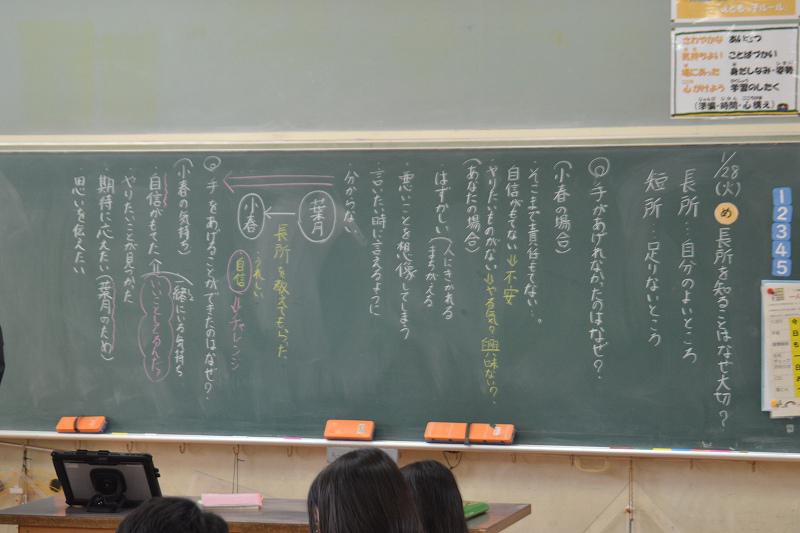 えともっ子ルール
さわやかな あいさつ
気持ちよい ことばづかい
場にあった 身だしなみ・姿勢
心がけよう 学習のしたく
(準備・時間・心構え)
1/28(火) め 長所を知ることはなぜ大切?
長所…自分のよいところ
短所…足りないところ
◎手があげれなかったのはなぜ?
(小春の場合)
そこまで責任もてない…。
自信がもてない⇒不安
やりたいものがない⇒やる気?興味ない?
(あなたの場合)
はずかしい(人にきかれる
まちがえる
悪いことを想像してしまう
・言いたい時に言えるように
・分からない
葉月
小春
長所を教えてもらった
うれしい
自信⇒チャレンジ
◎手をあげることができたのはなぜ?
(小春の気持ち)
・自信がもてた
一緒にいる気持ち
いいとこてるんだ
やりたいことが自分かた
・期待に応えたい(葉月のため)
思いを伝えたい
1
2
3
4
5